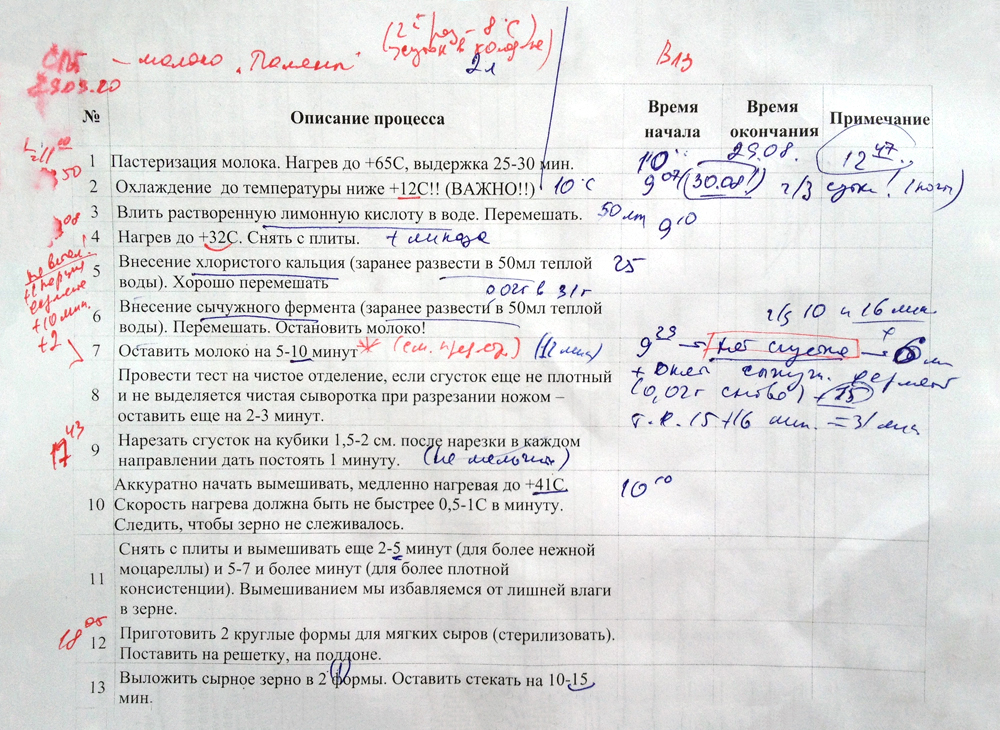 (2й раз - 8°C)
СПб - молоко „Полены"
2л
В13
№ Описание процесса Время начала Время окончания Примечание
29.08.
1 Пастеризация молока. Нагрев до +65С, выдержка 25-30 мин. 10 12 47
2 Охлаждение до температуры ниже +12С!! (ВАЖНО!!) 10°C 9 07 (30.08!) ч/з сутки! (ночь)
3 Влить растворенную лимонную кислоту в воде. Перемешать. 50 мл 9 10
4 Нагрев до +32С. Снять с плиты. + липаза
5 Внесение хлористого кальция (заранее развести в 50мл теплой 25
воды). Хорошо перемешать
6 Внесение сычужного фермента (заранее развести в 50мл теплой
воды). Перемешать. Остановить молоко! ч/з 10 и 16 мин.
7 Оставить молоко на 5-10 минут (12 мин) 9 23 → нет сгустка → 6
8 Провести тест на чистое отделение, если сгусток еще не плотный
и не выделяется чистая сыворотка при разрезании ножом – (0,02г снова) + 15
оставить еще на 2-3 минут. т.к. 15+16 мин. = 31 мин
17 43
9 Нарезать сгусток на кубики 1,5-2 см. после нарезки в каждом
направлении дать постоять 1 минуту. (не мельчить)
Аккуратно начать вымешивать, медленно нагревая до +41С.
10 Скорость нагрева должна быть не быстрее 0,5-1С в минуту.
Следить, чтобы зерно не слеживалось.
Снять с плиты и вымешивать еще 2-5 минут (для более нежной
моцареллы) и 5-7 и более минут (для более плотной
11 консистенции). Вымешиванием мы избавляемся от лишней влаги
в зерне.
18 05
12 Приготовить 2 круглые формы для мягких сыров (стерилизовать).
Поставить на решетку, на поддоне.
13 Выложить сырное зерно в 2 формы. Оставить стекать на 10-15
мин.